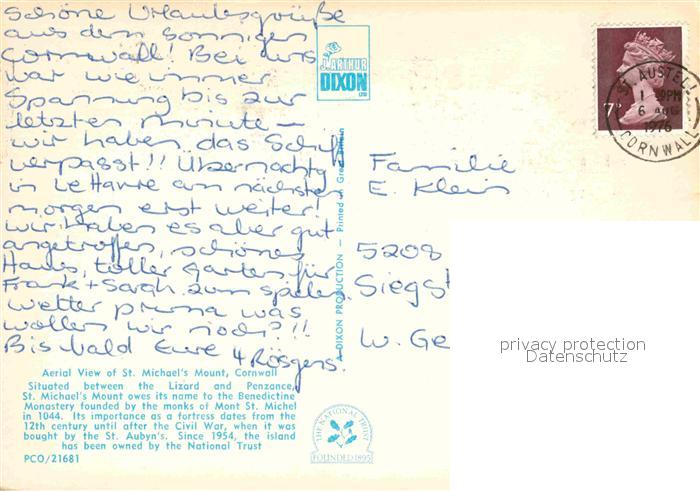 Schöne Urlaubsgrüße
aus dem sonnigen
Cornwall! Bei uns
war wie immer
Spannung bis zur
letzten minute –
wir haben das Schiff
verpasst!! Übernachtg
in Le Havre am nächsten
morgen erst weiter!
wir haben es aber gut
angetroffen, schönes
Haus, toller Garten für
Frank + Sarah zum spielen.
Wetter prima was
wollen wir noch?!!
Bis bald Eure 4 Rösgens.
Aerial View of St. Michael's Mount, Cornwall
Situated between the Lizard and Penzance,
St. Michael's Mount owes its name to the Benedictine
Monastery founded by the monks of Mont St. Michel
in 1044. Its importance as a fortress dates from the
12th century until after the Civil War, when it was
bought by the St. Aubyn's. Since 1954, the island
has been owned by the National Trust
PCO/21681
J. ARTHUR
DIXON
LTD
A DIXON PRODUCTION — Printed in Great Britain
THE NATIONAL TRUST
FOUNDED 1895
7P
ST. AUSTELL
6 AUG
1976
CORNWALL
Familie
E. Klein
5208
Siegst
W. Ge
privacy protection
Datenschutz